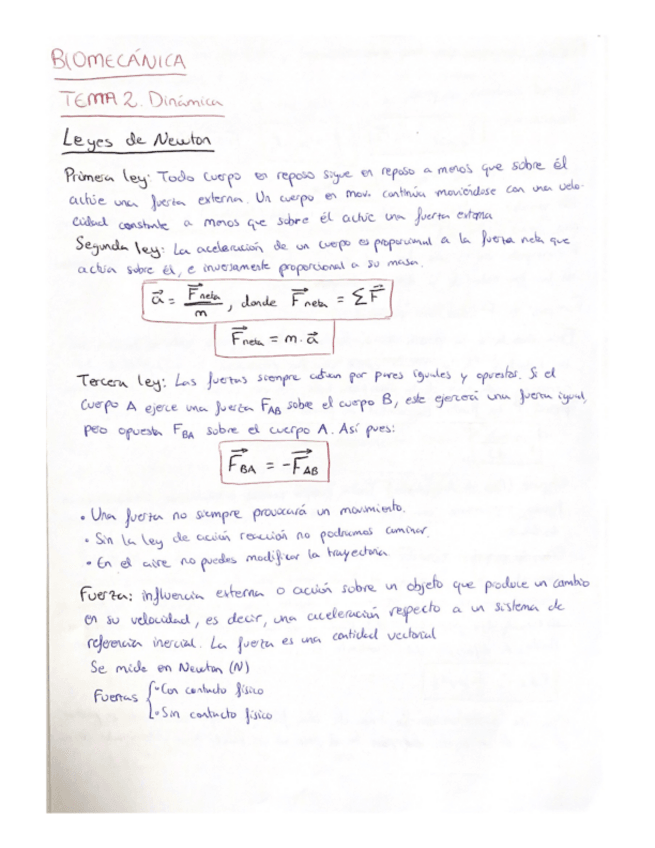 BIOMECÁNICA
TEMA 2. Dinámica
Leyes de Newton
Primera ley: Todo cuerpo en reposo sigue en reposo a menos que sobre él
actúe una fuerza externa. Un cuerpo en mov. continúa moviéndose con una velo-
cidad constante a menos que sobre él actúe una fuerza externa
Segunda ley: La aceleración de un cuerpo es proporcional a la fuerza neta que
actúa sobre él, e inversamente proporcional a su masa.
a⃗ = F⃗neta / m , donde F⃗neta = ΣF⃗
F⃗neta = m · a⃗
Tercera ley: Las fuerzas siempre actúan por pares iguales y opuestos. Si el
cuerpo A ejerce una fuerza FAB sobre el cuerpo B, este ejercerá una fuerza igual,
pero opuesta FBA sobre el cuerpo A. Así pues:
F⃗BA = -F⃗AB
• Una fuerza no siempre provocará un movimiento.
• Sin la ley de acción reacción no podríamos caminar.
• En el aire no puedes modificar la trayectoria
Fuerza: influencia externa o acción sobre un objeto que produce un cambio
en su velocidad, es decir, una aceleración respecto a un sistema de
referencia inercial. La fuerza es una cantidad vectorial
Se mide en Newton (N)
Fuerzas { • Con contacto físico
• Sin contacto físico